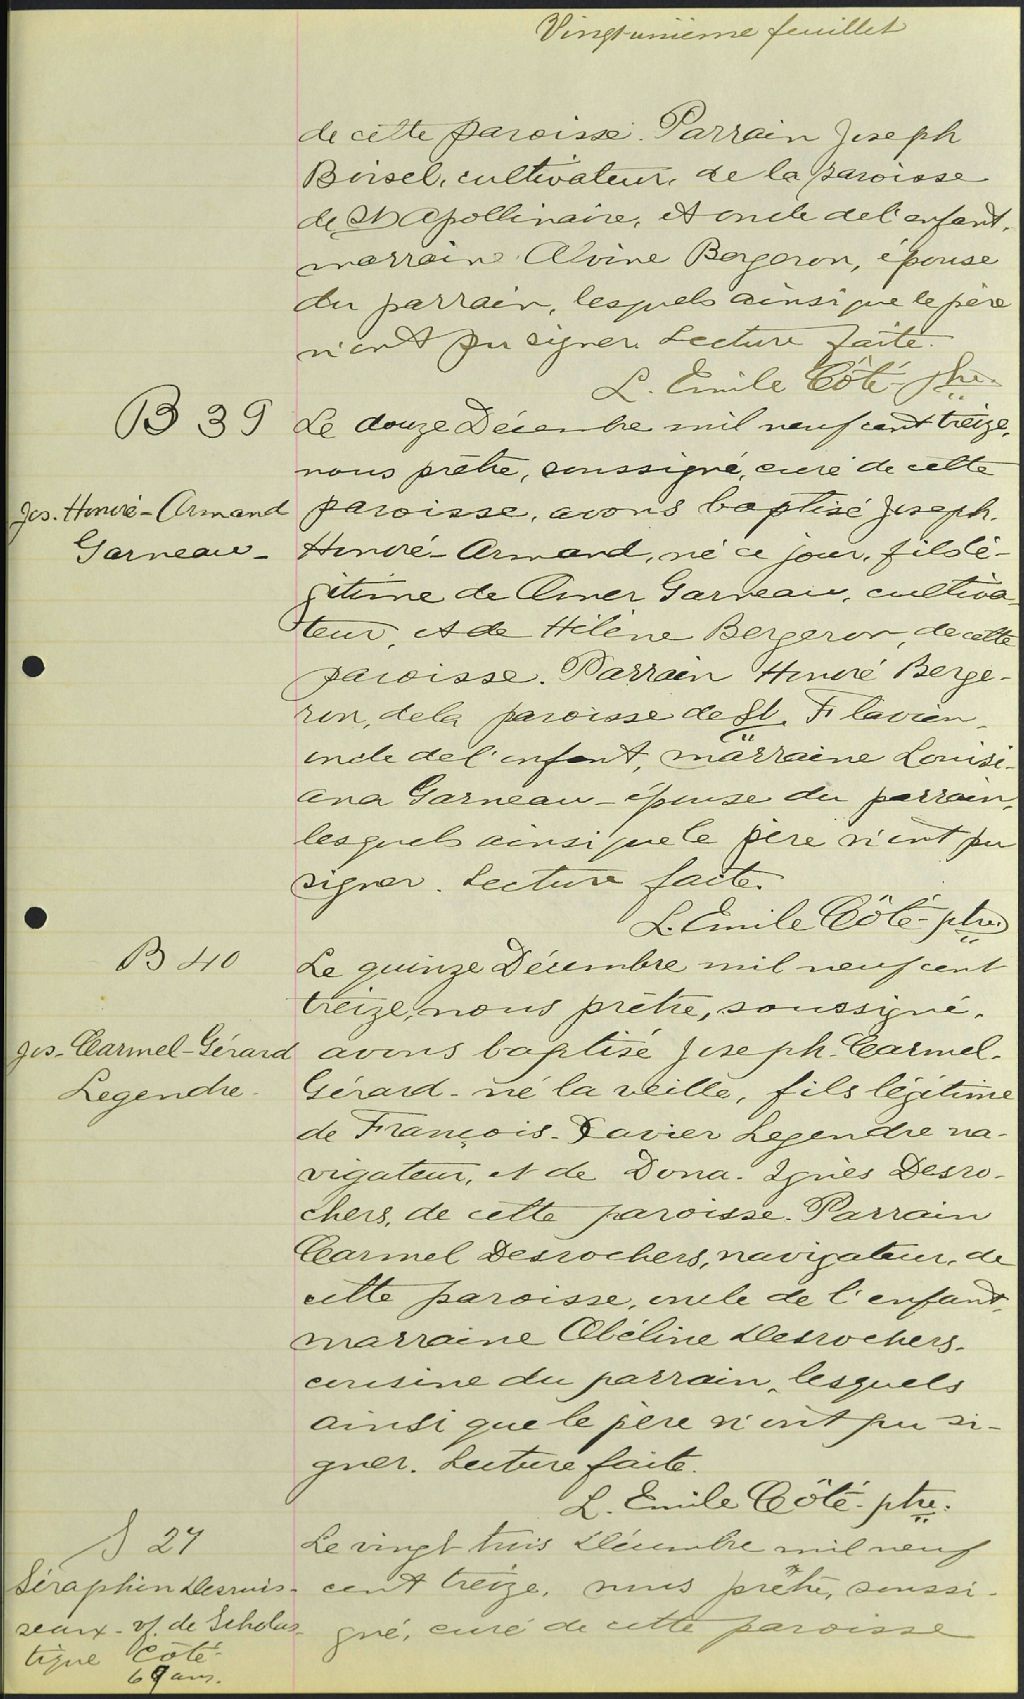 Vingt-unième feuillet
de cette paroisse. Parrain Joseph
Boisel, cultivateur, de la paroisse
de St Apollinaire, et oncle de l'enfant,
marraine Alvine Bergeron, épouse
du parrain, lesquels ainsi que le père
n'ont pu signer. Lecture faite.
L. Emile Côté ptre.
B 39
Jos. Honoré-Armand
Garneau-
Le douze Décembre mil neuf cent treize,
nous prêtre, soussigné, curé de cette
paroisse, avons baptisé Joseph.
Honoré-Armand, né ce jour, fils lé-
gitime de Omer Garneau, cultiva-
teur, et de Hélène Bergeron, de cette
paroisse. Parrain Honoré Berge-
ron, de la paroisse de St. Flavien,
oncle de l'enfant, marraine Louisi-
ana Garneau-épouse du parrain,
lesquels ainsi que le père n'ont pu
signer. Lecture faite.
L. Emile Côté-ptre.
B 40
Jos-Carmel-Gérard
Legendre.
Le quinze Décembre mil neuf cent
treize, nous prêtre, soussigné,
avons baptisé Joseph-Carmel-
Gérard-né la veille, fils légitime
de François-Xavier Legendre na-
vigateur, et de Dona-Ignès Desro-
chers, de cette paroisse. Parrain
Carmel Desrochers, navigateur, de
cette paroisse, oncle de l'enfant,
marraine Obéline Desrochers,
cousine du parrain, lesquels
ainsi que le père n'ont pu si-
gner. Lecture faite.
L. Emile Côté-ptre.
S 27
Séraphin Desruis-
seaux-vf. de Scholas-
tique Côté-
69 ans.
Le vingt trois Décembre mil neuf
cent treize, nous prêtre, soussi-
gné, curé de cette paroisse